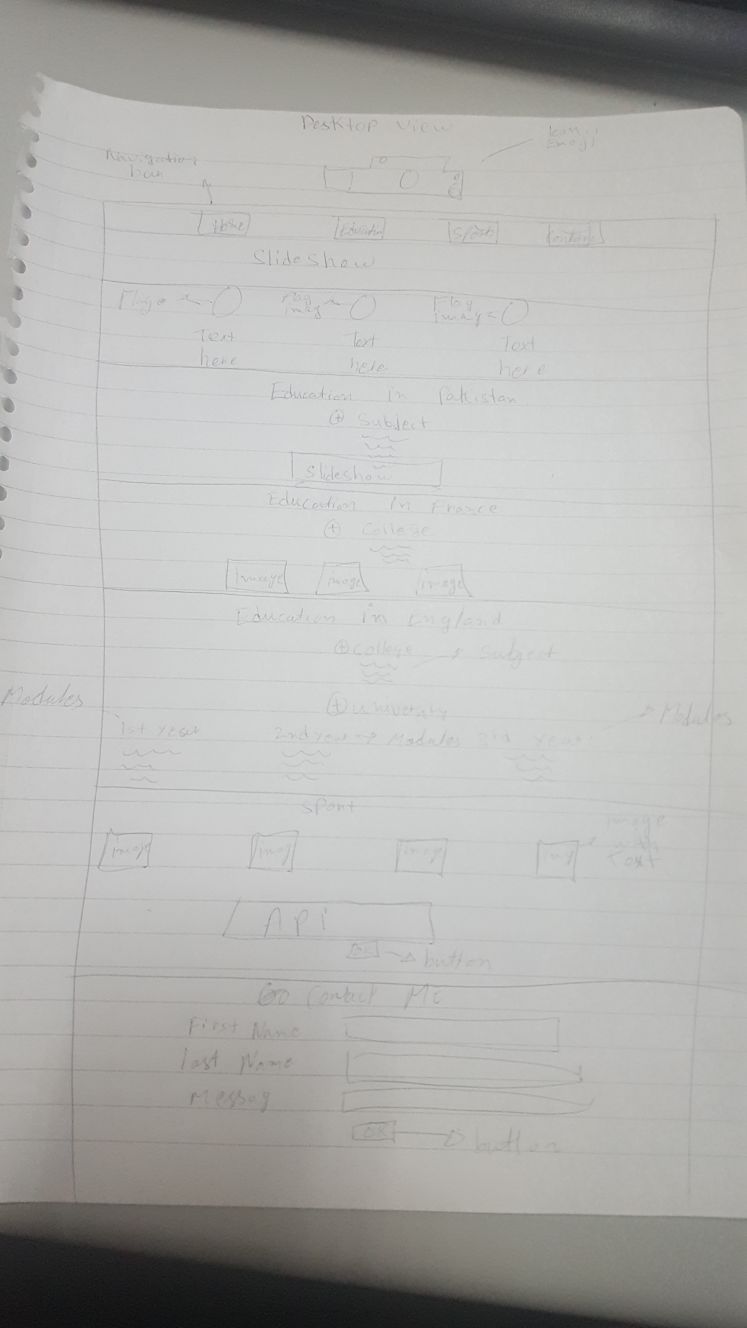 Desktop View
Icon
Emoji
Navigation
bar
Home Education Sport Contact
SlideShow
Flag Flag image Flag image
Text Text Text
here here here
Education in Pakistan
+ Subject
Slideshow
Education in France
+ College
image image image
Education in England
+ College → Subject
+ university
Modules Modules
1st year 2nd year → Modules 3rd year
Sport
image imag image img
image
with
Text
API
OK → button
Contact ME
First Name
last Name
Messag
OK → button